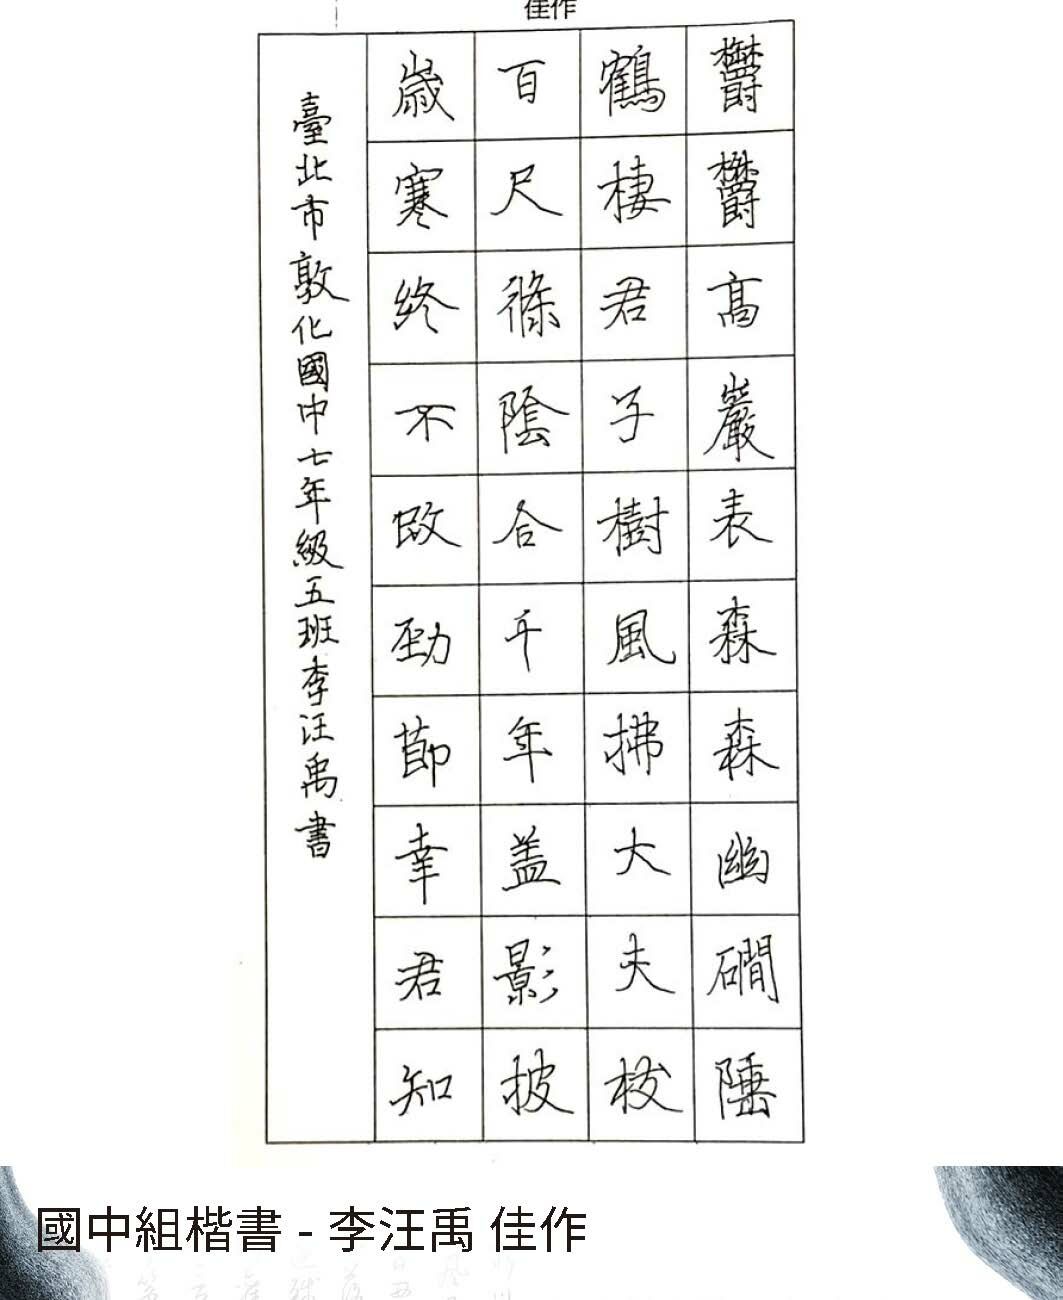 佳作
鬱鬱高巖表森森幽磵陲
鶴棲君子樹風拂大夫枝
百尺條陰合千年盖影披
歲寒終不改勁莭幸君知
臺北市敦化國中七年級五班李汪禹書
國中組楷書 - 李汪禹 佳作